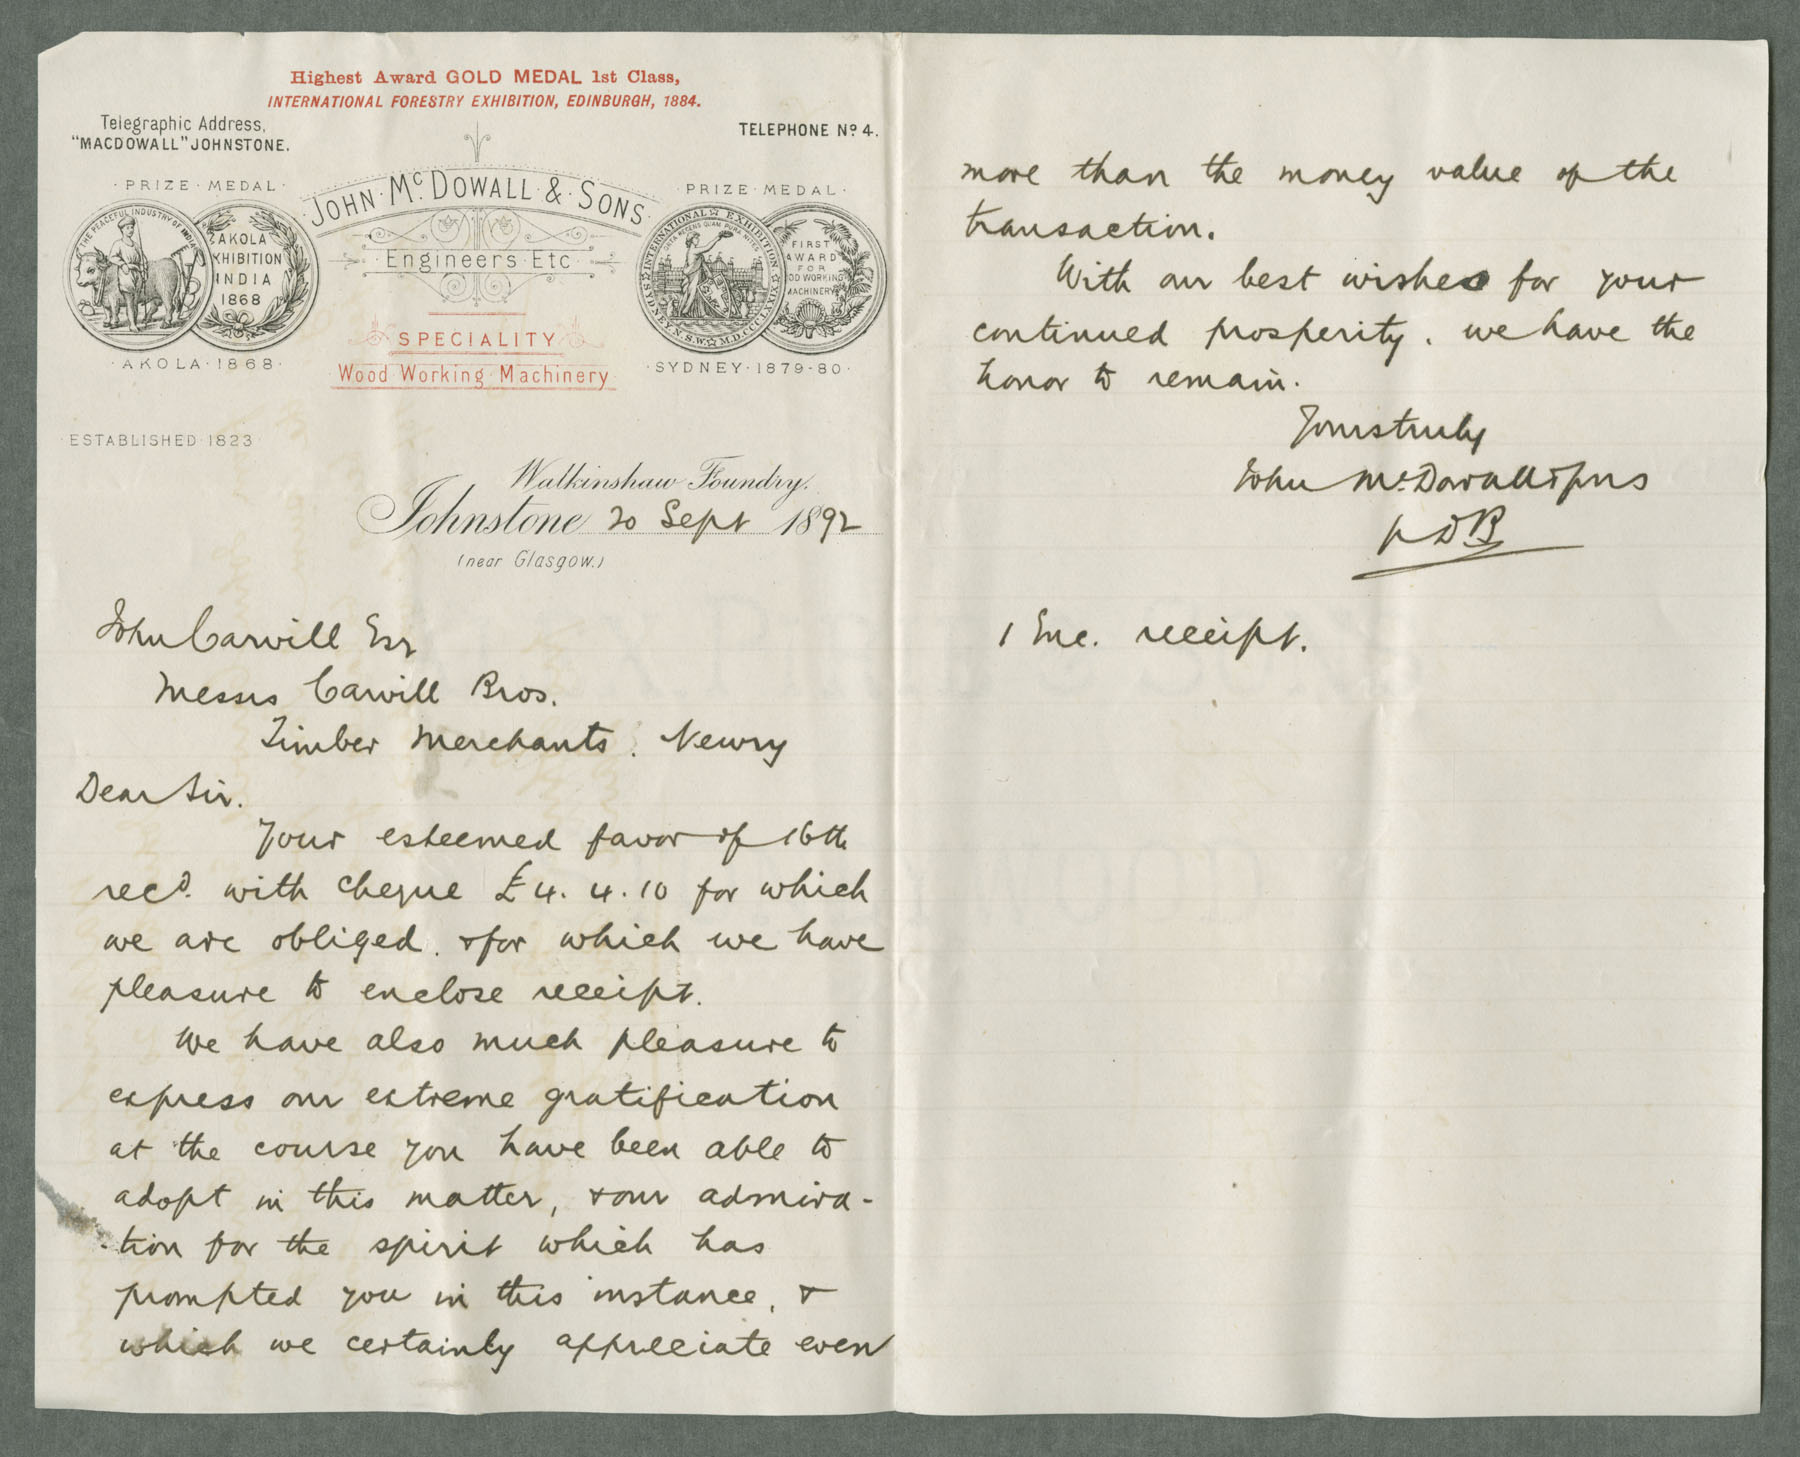 Highest Award GOLD MEDAL 1st Class,
INTERNATIONAL FORESTRY EXHIBITION, EDINBURGH, 1884.
Telegraphic Address,
"MACDOWALL" JOHNSTONE.
TELEPHONE No 4.
PRIZE MEDAL
THE PEACEFUL INDUSTRY OF INDIA
AKOLA
XHIBITION
INDIA
1868
AKOLA 1868
JOHN McDOWALL & SONS
Engineers Etc
SPECIALITY
Wood Working Machinery
PRIZE MEDAL
INTERNATIONAL EXHIBITION
SYDNEY N.S.W. M.DCCCLXXIX
FIRST
AWARD
FOR
OD WORKING
MACHINERY
SYDNEY 1879-80
ESTABLISHED 1823
Walkinshaw Foundry,
Johnstone 20 Sept 1892
(near Glasgow.)
John Carvill Esq
Messrs Carvill Bros.
Timber Merchants. Newry
Dear Sir.
Your esteemed favor of 16th
recd. with cheque £4. 4. 10 for which
we are obliged. & for which we have
pleasure to enclose receipt.
We have also much pleasure to
express our extreme gratification
at the course you have been able to
adopt in this matter, & our admira-
tion for the spirit which has
prompted you in this instance, &
which we certainly appreciate even
more than the money value of the
transaction.
With our best wishes for your
continued prosperity. we have the
honor to remain.
Yours truly
John McDowall & Sons
p DB
1 Enc. receipt.